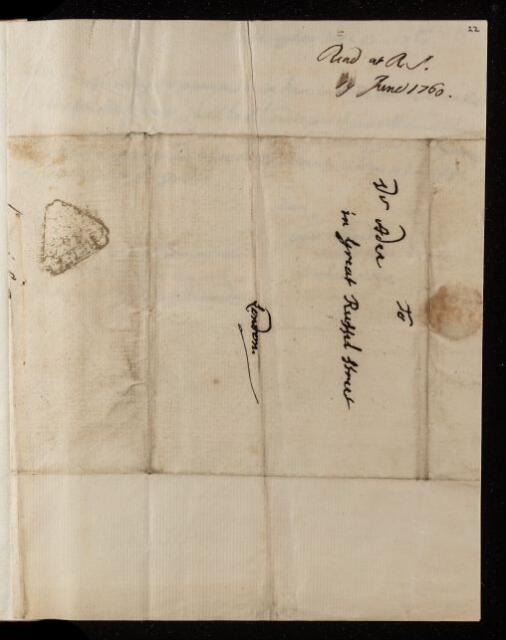 22
Read at R.S.
19 June 1760.
To
Dr Aden
in Great Russel Street
London.